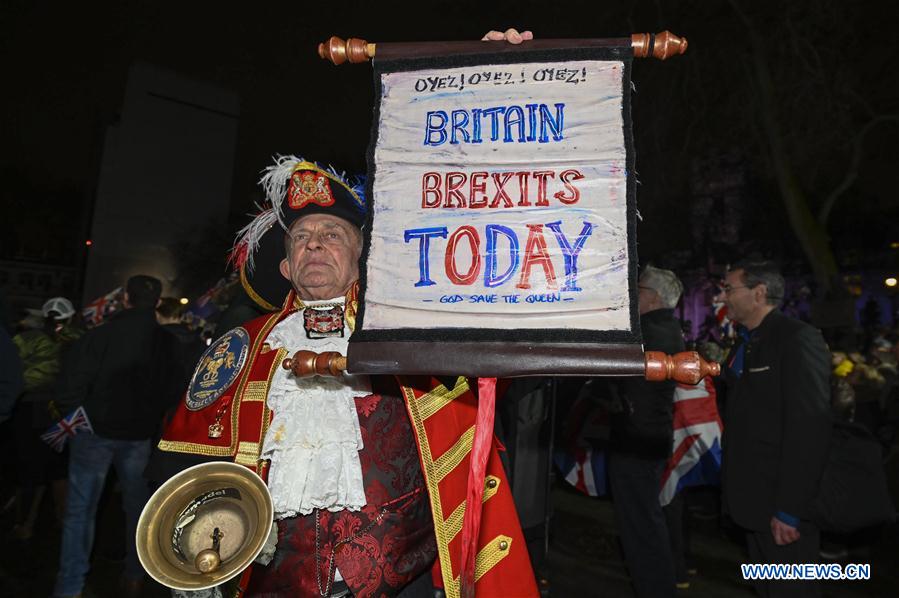 OYEZ! OYEZ! OYEZ!
BRITAIN
BREXITS
TODAY
- GOD SAVE THE QUEEN -
WWW.NEWS.CN